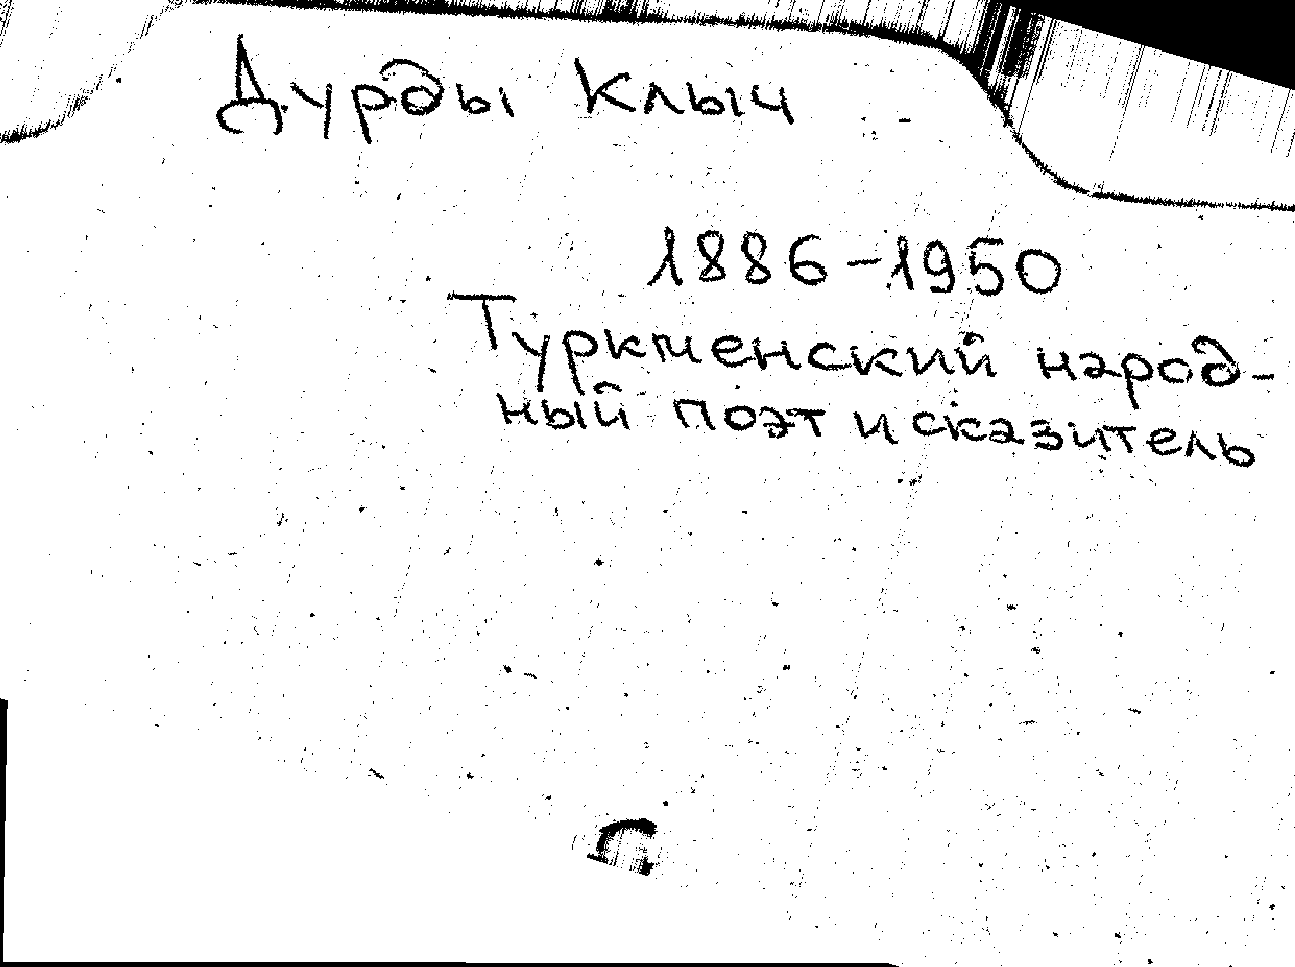 Дурды Клыч
1886-1950
Туркменский народ-
ный поэт и сказитель